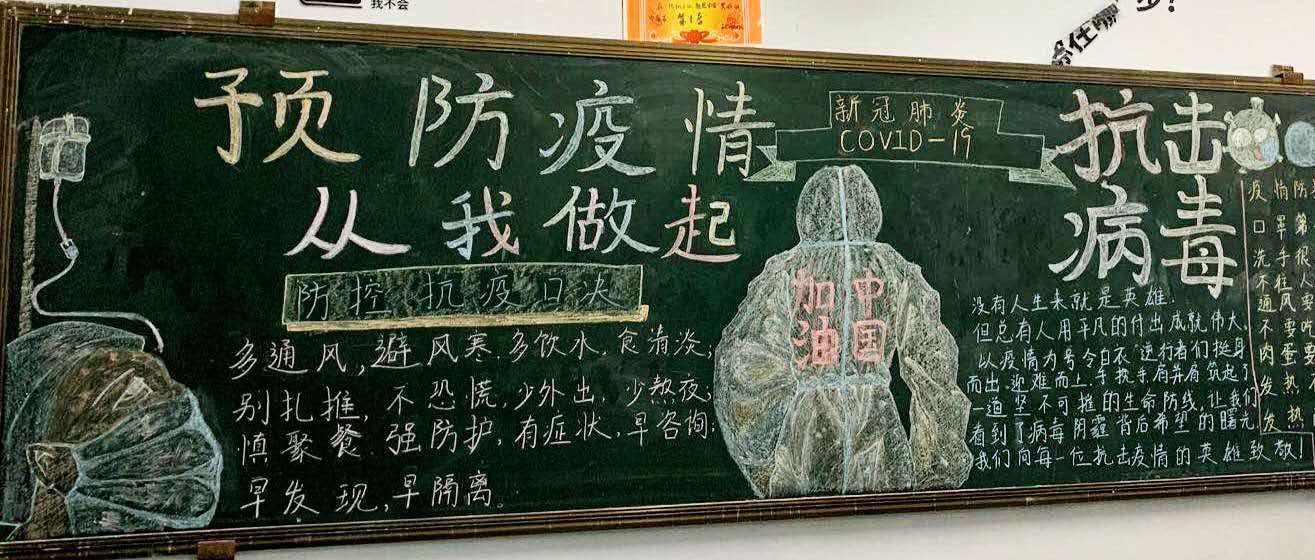 我不会
预防疫情
从我做起
防控抗疫口决
多通风,避风寒.多饮水,食清淡;
别扎推,不恐慌,少外出,少熬夜;
慎聚餐.强防护,有症状,早咨询;
早发现,早隔离.
新冠肺炎
COVID-19
中国
加油
抗击
病毒
没有人生来就是英雄.
但总有人用平凡的付出成就伟大,
以疫情为号令白衣逆行者们挺身
而出.迎难而上.手挽手肩并肩筑起了
一道坚不可摧的生命防线,让我们
看到了病毒阴霾背后希望的曙光.
我们向每一位抗击疫情的英雄致敬!
疫情防
口罩
洗手很
不往
通风要
不需
肉蛋要
发热
发热